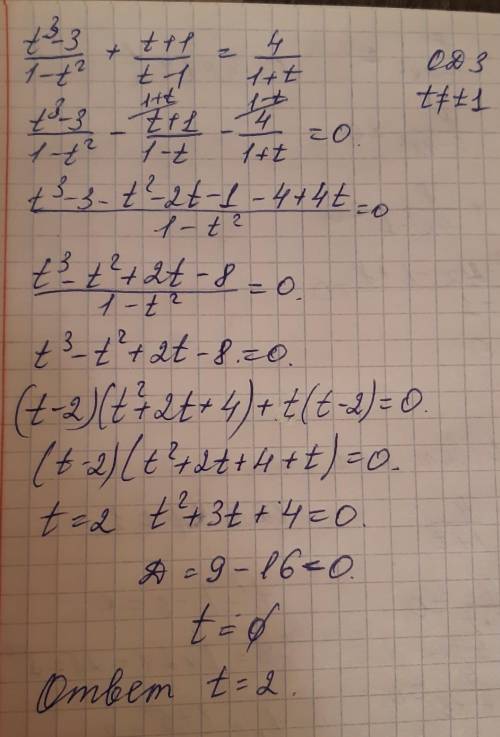 (t³-3)/(1-t²) + (t+1)/(t-1) = 4/(1+t)   ОДЗ
t≠±1
(t³-3)/(1-t²) - (t+1)/(1-t) - 4/(1+t) = 0.   1+t   1-t
(t³-3-t²-2t-1-4+4t)/(1-t²) = 0
(t³-t²+2t-8)/(1-t²) = 0.
t³-t²+2t-8.=0.
(t-2)(t²+2t+4)+t(t-2)=0.
(t-2)(t²+2t+4+t)=0.
t=2   t²+3t+4=0.
Д=9-16<0.
t=∅
Ответ t=2.